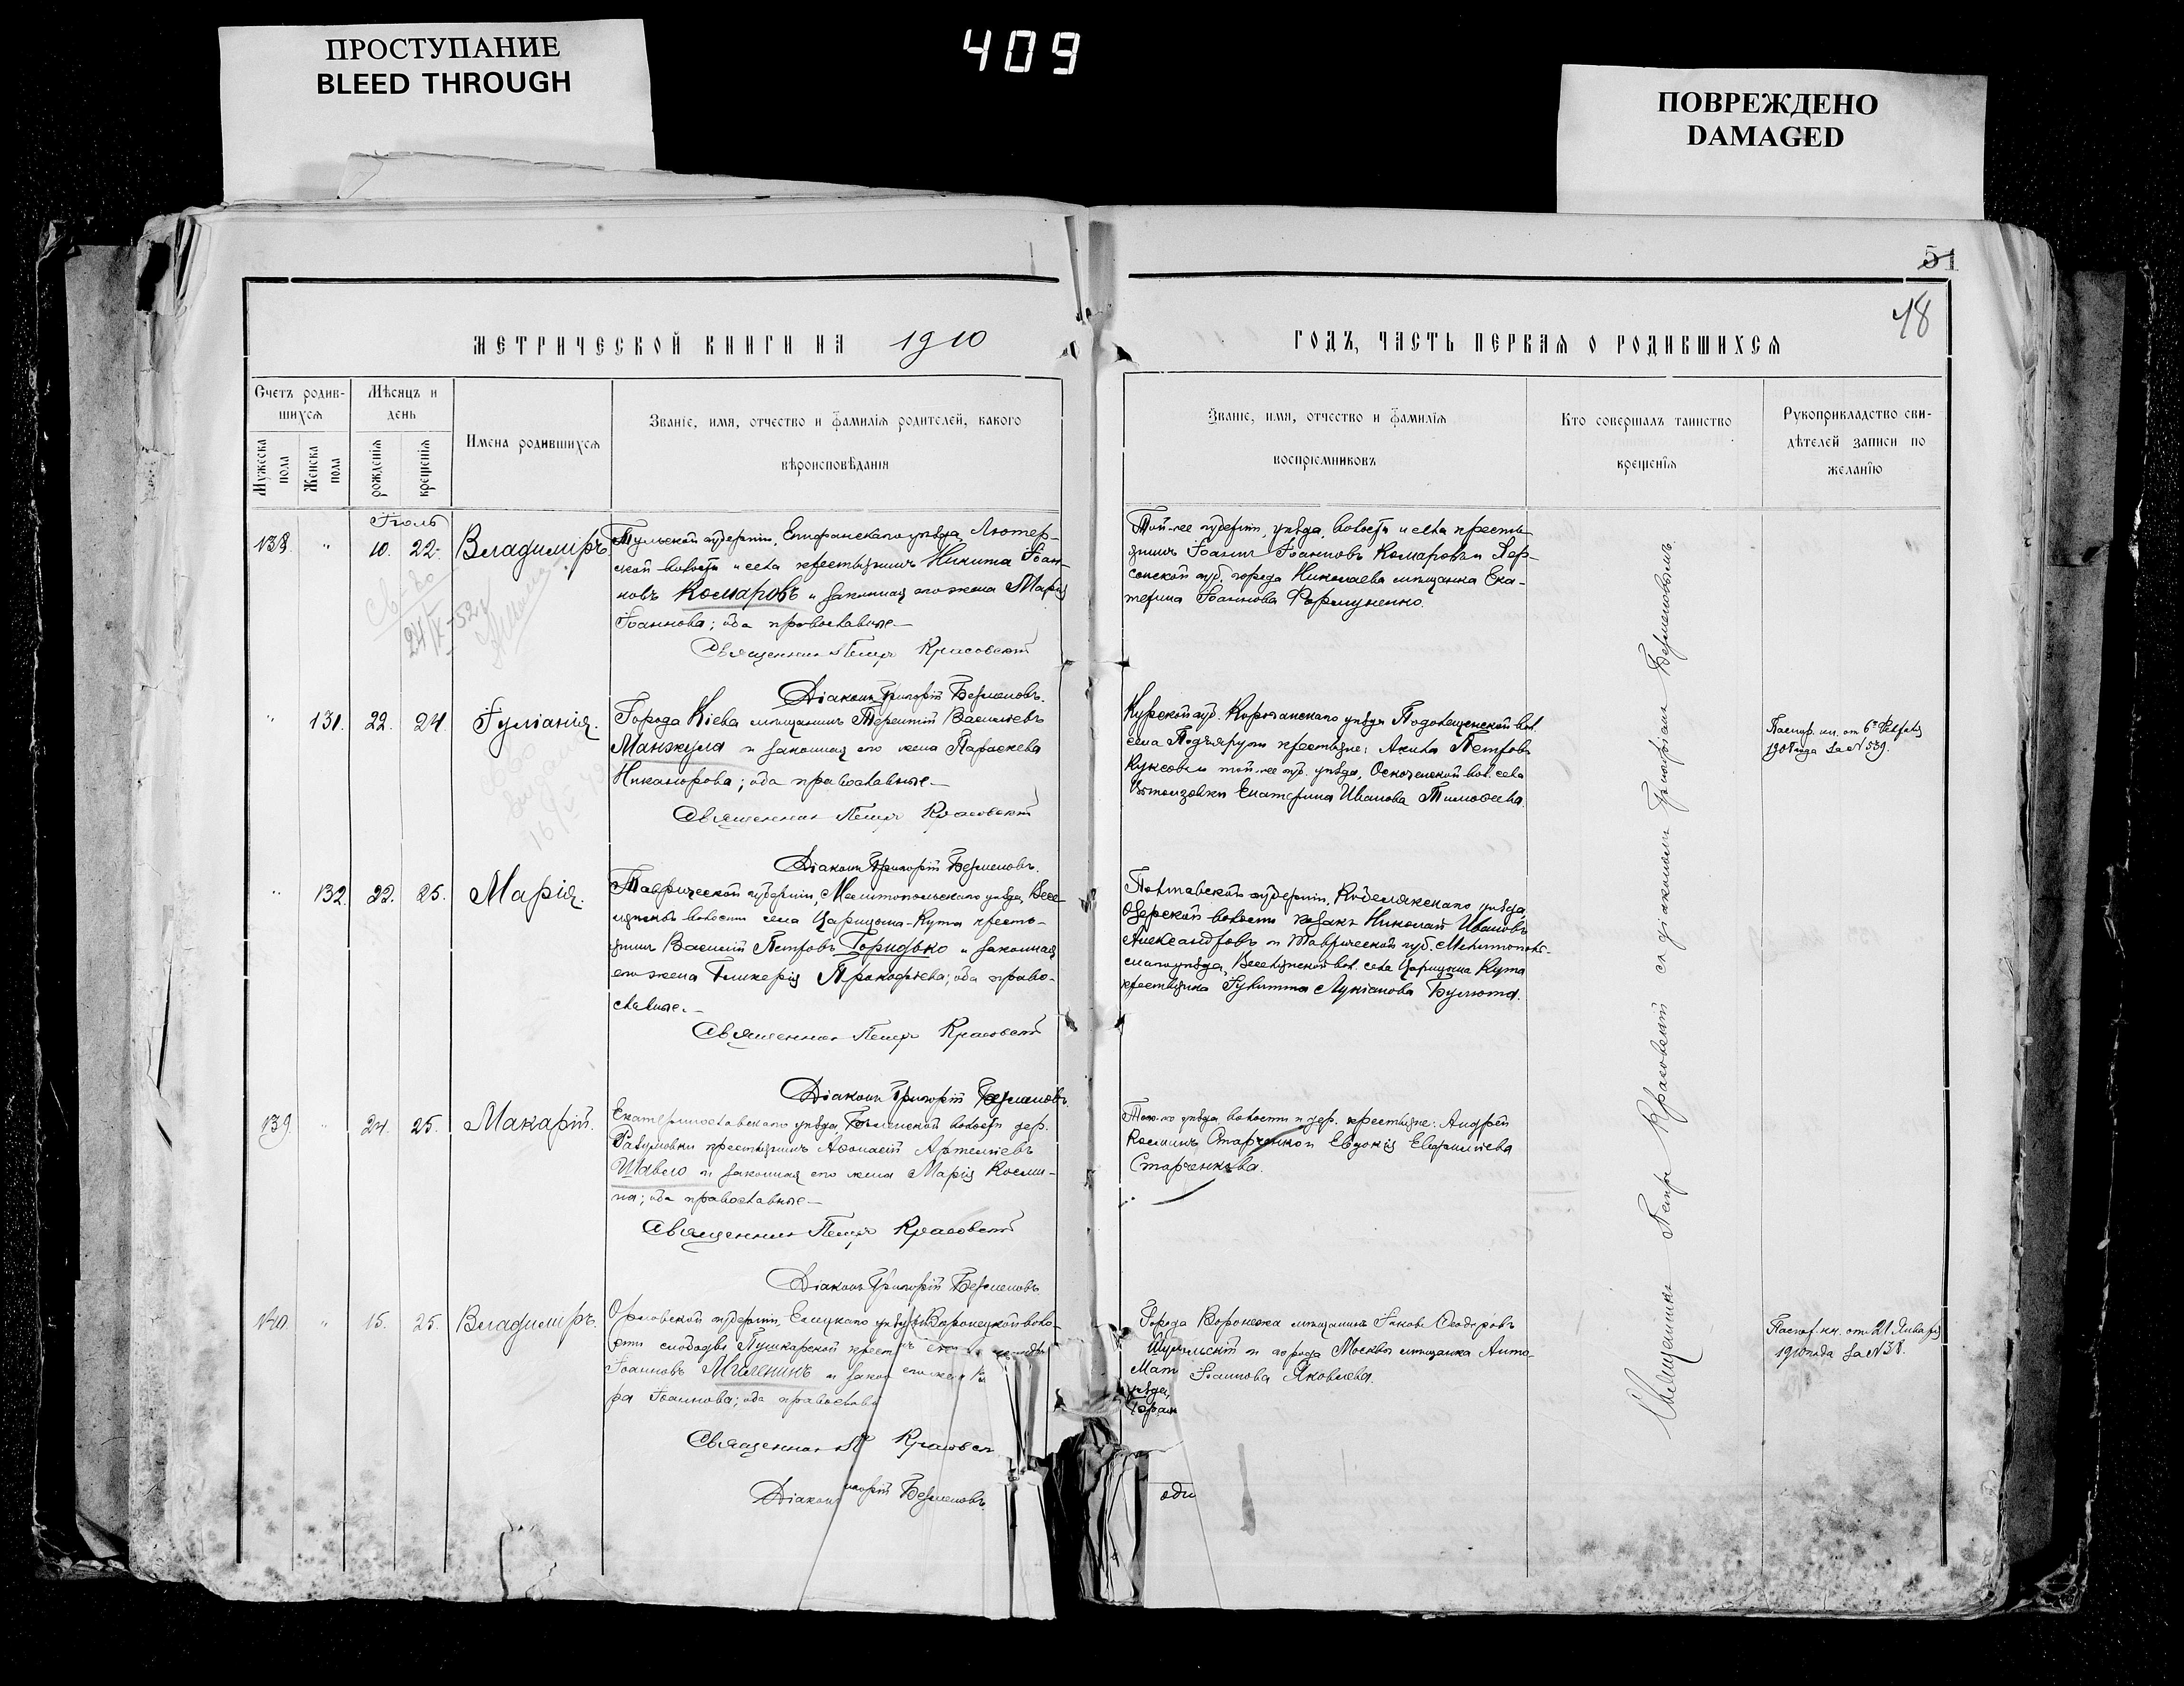 ПРОСТУПАНИЕ
BLEED THROUGH
409
ПОВРЕЖДЕНО
DAMAGED
51
18
МЕТРИЧЕСКОЙ КНИГИ НА 1910
ГОДЪ, ЧАСТЬ ПЕРВАЯ О РОДИВШИХСЯ
Счетъ родив-
шихся
Мужеска
пола
Женска
пола
Мѣсяцъ и
день
рожденія
крещенія
Имена родившихся
Званіе, имя, отчество и фамилія родителей, какого
вѣроисповѣданія
Званіе, имя, отчество и фамилія
воспріемниковъ
Кто совершалъ таинство
крещенія
Рукоприкладство сви-
дѣтелей записи по
желанію
Іюль
138. " 10. 22. Владиміръ
Тульской губерніи, Епифанскаго уѣзда, Лютер-
ской волости и села крестьянинъ Никита Іоан-
новъ Комаровъ и законная его жена Марія
Іоаннова; оба православные—
Священникъ Петръ Красовскій
Діаконъ Григорій Безменовъ.
Той-же губерніи, уѣзда, волости и села кресть-
янинъ Іоаннъ Іоанновъ Комаровъ и Хер-
сонской губ. города Николаева мѣщанка Ека-
терина Іоаннова
" 131. 22. 24. Іуліанія.
Города Кіева мѣщанинъ Терентій Васильевъ
Манжула и законная его жена Параскева
Никанорова; оба православные—
Священникъ Петръ Красовскій
Діаконъ Григорій Безменовъ.
Курской губ. Корочанскаго уѣзда вол.
села крестьяне: Акила Петровъ
той-же губ. уѣзда, вол. села
Екатерина Иванова Тимоѳеева.
Паспор. кн. от 6
190 года за № 539.
" 132. 22. 25. Марія.
Таврической губерніи, Мелитопольскаго уѣзда, Весе-
лянской волости села Царицына-Кута кресть-
янинъ Василій Петровъ Горидько и законная
его жена Гликерія Прокофьева; оба право-
славные.—
Священникъ Петръ Красовскій
Діаконъ Григорій Безменовъ.
Полтавской губерніи, Кобелякскаго уѣзда,
Озерской волости козакъ Николай Ивановъ
Александровъ и Таврической губ. Мелитополь-
скаго уѣзда, Веселянской вол. села Царицына Кута
крестьянка Іулитта Лукіанова
139. " 24. 25. Макарій.
Екатеринославскаго уѣзда, волости дер.
крестьянинъ Аѳонасій Артемьевъ
Шавло и законная его жена Марія Косьми-
на; оба православные—
Священникъ Петръ Красовскій
Діаконъ Григорій Безменовъ.
Того-же уѣзда, волости и дер. крестьяне: Андрей
Косьминъ Старченко и Евдокія
Старченкова.
140. " 15. 25. Владиміръ.
Орловской губерніи, Елецкаго уѣзда, Воронецкой воло-
сти слободы Пушкарской
Іоанновъ и закон его жена
ра Іоаннова; оба православ
Священникъ П Красовск
Діаконъ горій Безменовъ.
Города Воронежа мѣщанинъ Іаковъ Ѳеодоровъ
и города Москвы мѣщанка Анто-
Іоаннова Яковлева.
Паспор. кн. от 21 Января
1910 года за № 38.
Священникъ Петръ Красовскій съ діакономъ Григоріемъ Безменовымъ.